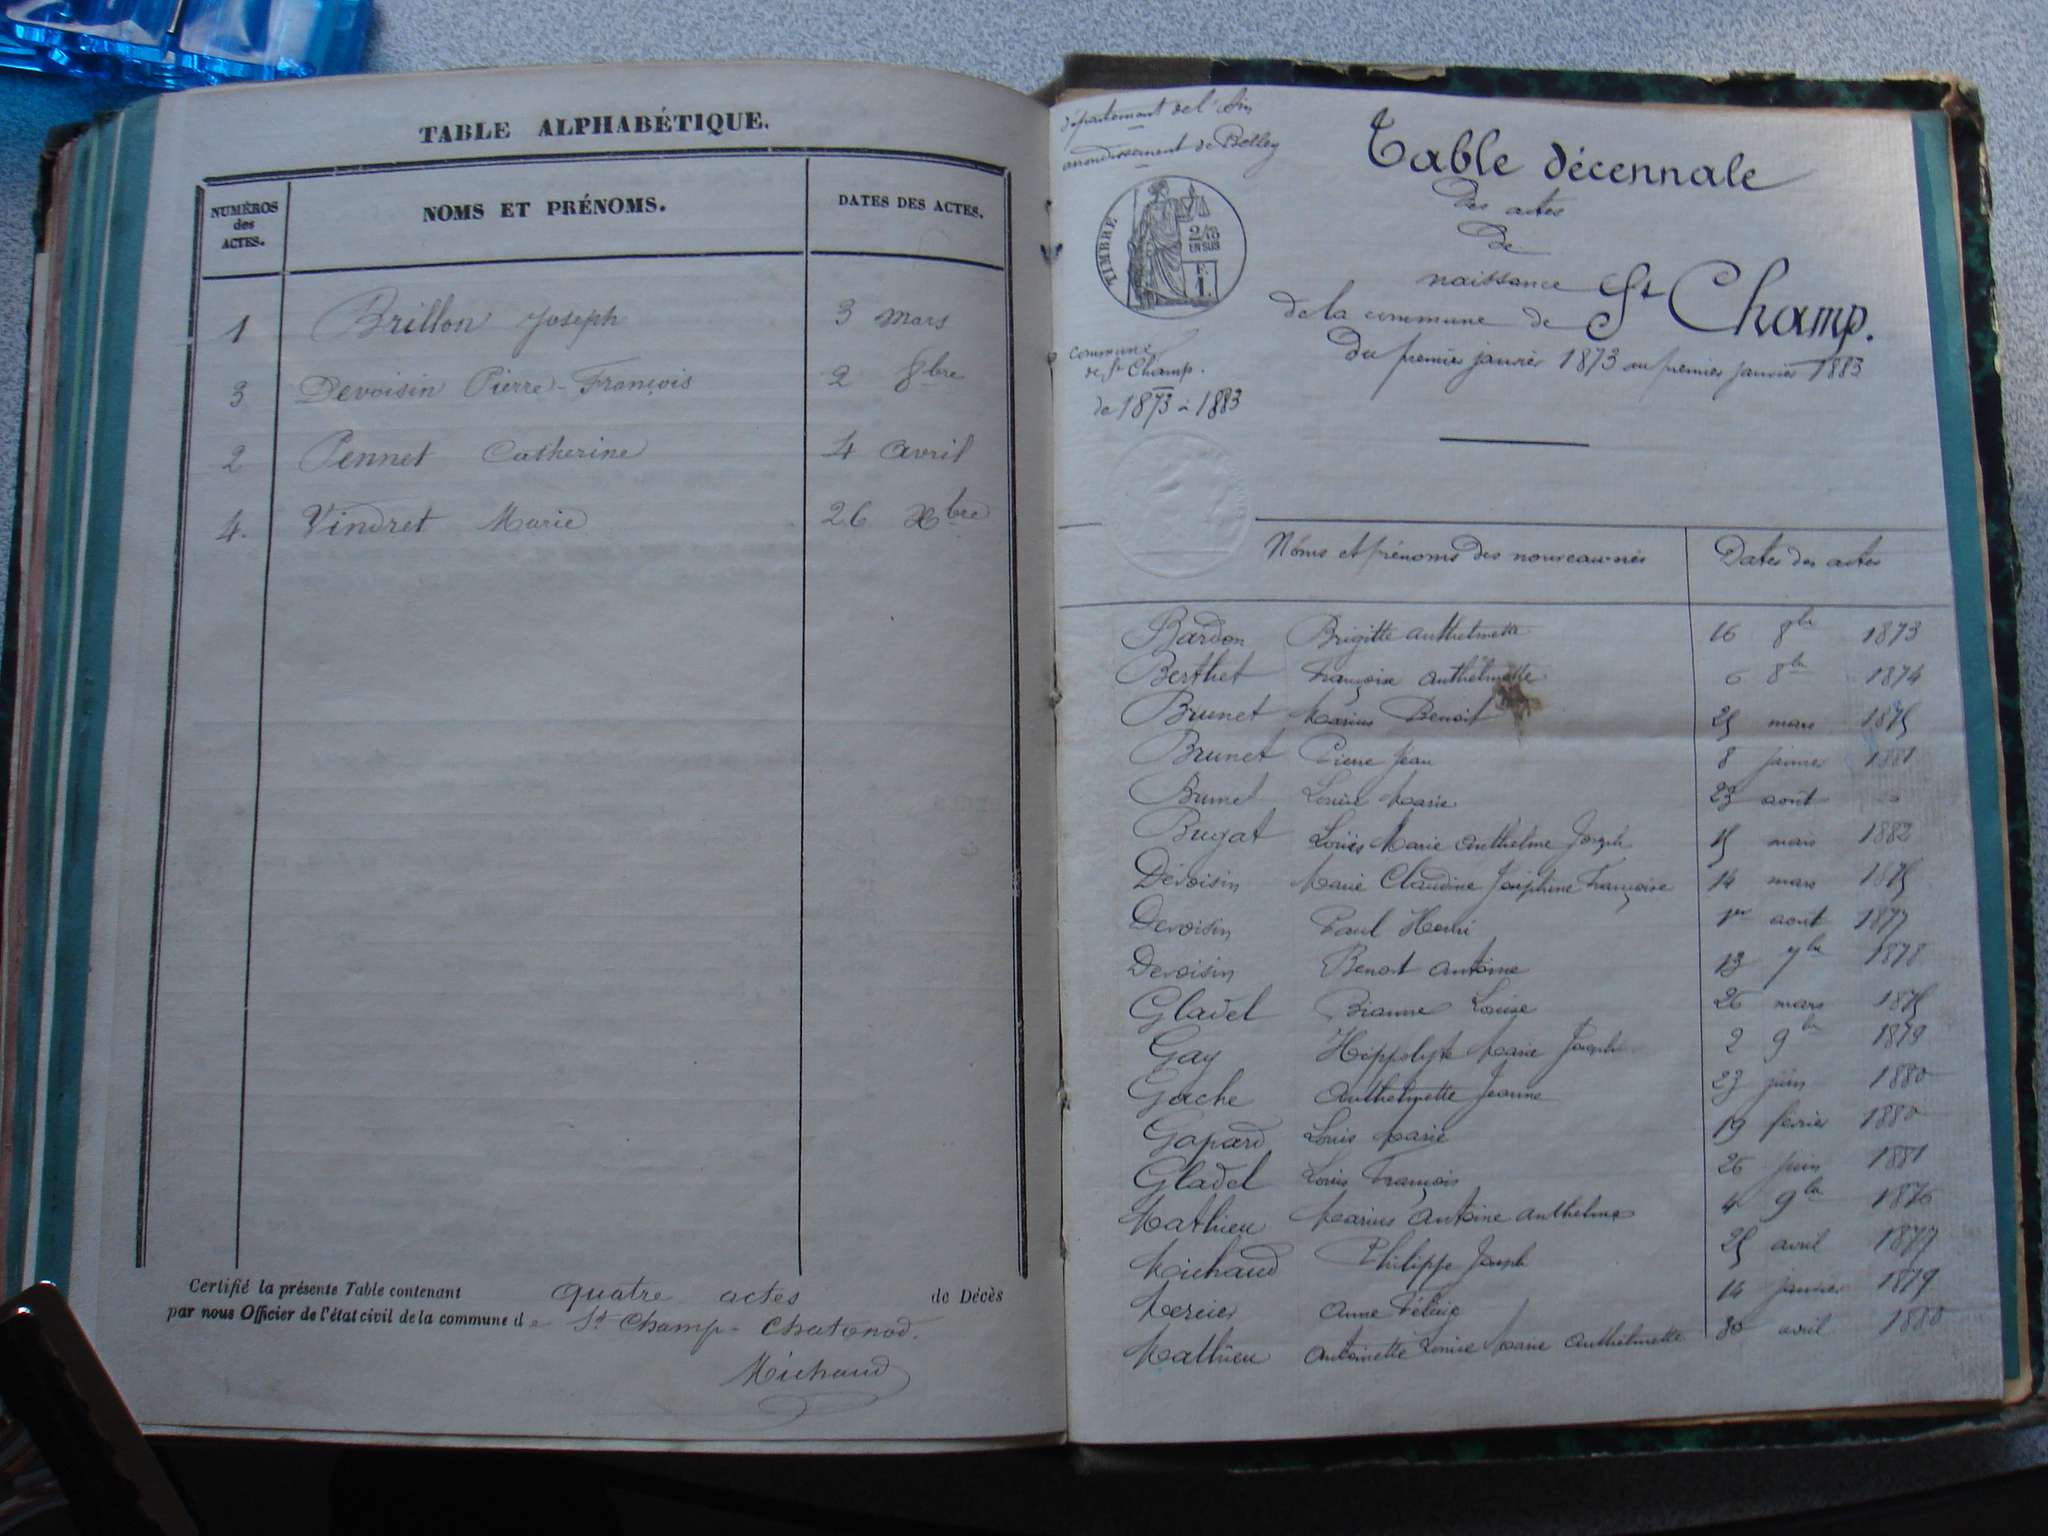 TABLE ALPHABÉTIQUE.
NUMÉROS des ACTES. NOMS ET PRÉNOMS. DATES DES ACTES.
1 Brillon Joseph 3 Mars
3 Devoisin Pierre-François 2 8bre
2 Pennet Catherine 4 Avril
4. Vindret Marie 26 Xbre
Certifié la présente Table contenant quatre actes de Décès
par nous Officier de l'état civil de la commune de St Champ-Chatonod.
Michaud
département de l'Ain
arrondissement de Belley
TIMBRE
2/10 EN SUS
Commune
de St Champ.
de 1873 à 1883
Table décennale
des actes
De
naissance
de la commune de St Champ.
Du premier janvier 1873 au premier janvier 1883
Noms et prénoms des nouveau-nés Dates des actes
Bardon Brigitte Anthelmette 16 8bre 1873
Berthet Françoise Anthelmette 6 8bre 1874
Brunet Marius Benoit 25 mars 1875
Brunet Pierre Jean 8 janvier 1881
Brunet Louise Marie 23 août
Bugat Louis Marie Anthelme Joseph 15 mars 1882
Devoisin Marie Claudine Joséphine Françoise 14 mars 1875
Devoisin Paul Henri 1er août 1877
Devoisin Benoit Antoine 13 7bre 1878
Gladel Louise 26 mars 1875
Gay Hippolyte Marie Joseph 2 9bre 1879
Gache Anthelmette Jeanne 23 juin 1880
Louis Marie 19 février 1880
Gladel Louis François 26 juin 1881
Mathieu Marius Antoine Anthelme 4 9bre 1876
Michaud Philippe Joseph 25 avril 1877
Mercier Anne 14 janvier 1879
Mathieu Antoinette Louise Marie Anthelmette 30 avril 1880